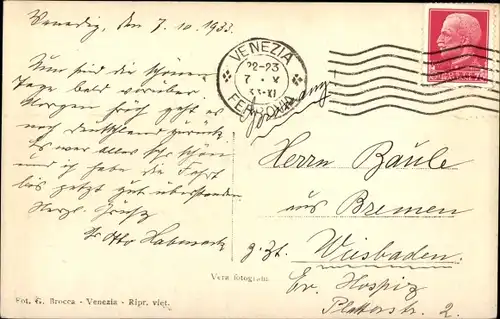 Venedig, den 7.10.1933.
Nun sind die schönen
Tage bald vorüber
Morgen früh geht es
nach Deutschland zurück.
Es war alles sehr schön
und ich habe die Fahrt
bis jetzt gut überstanden
Herzl. Grüße
Otto
VENEZIA
22-23
7 · X
33-XI
FERROVIA
Herrn Bäule
aus Bremen
z. Zt. Wiesbaden.
Ev. Hospiz
Platterstr. 2.
Vera fotografia
Fot. G. Brocca - Venezia - Ripr. viet.